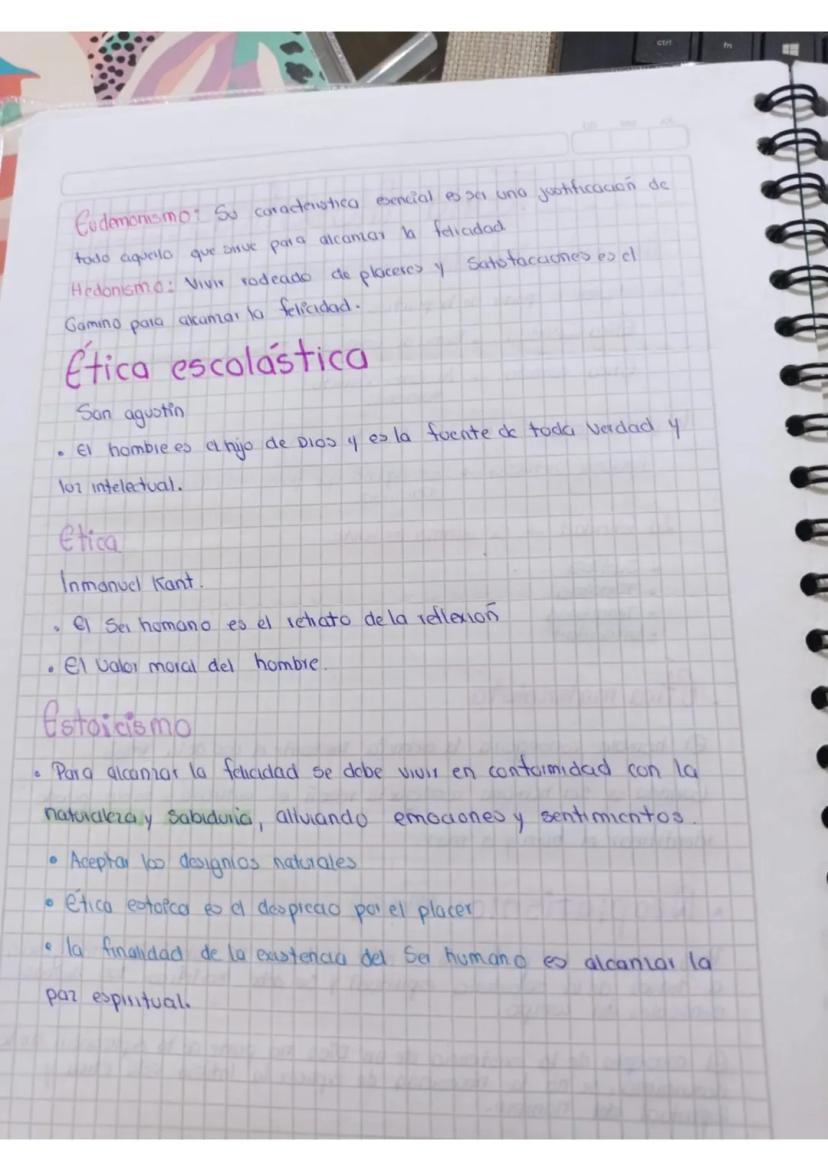 ctrl
fn
Eudemonismo: Su caracteristica esencial es ser una justificación de
todo aquello que sirve para alcanzar la felicidad
Hedonismo: Vivir rodeado de placeres y Satisfacciones es el
Camino para alcanzar la felicidad.
Ética escolástica
San agustin
• El hombre es el hijo de Dios y es la fuente de toda verdad y
loz intelectual.
Etica
Inmanuel Kant.
• El Ser homano es el retrato de la reflexion
• El Valor moral del hombre.
Estoicismo
• Para alcanzar la felicidad se debe vivir en conformidad con la
naturaleza y Sabiduria, alluiando emociones y sentimientos.
• Aceptar los designios naturales
• Ética estoica es el desprecio por el placer
• la finalidad de la existencia del Ser humano es alcanzar la
paz espiritual.